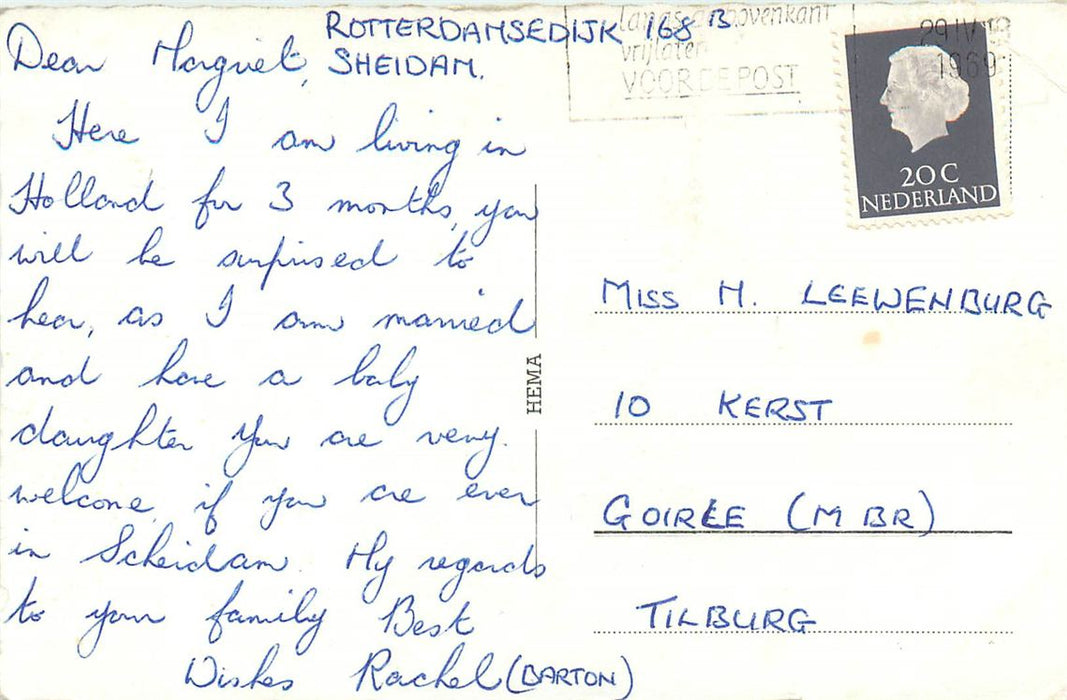 ROTTERDAMSEDIJK 168 B
SHEIDAM.
Dear Margriet,
Here I am living in
Holland for 3 months, you
will be surprised to
hear, as I am married
and have a baby
daughter You are very.
welcome, if you are ever
in Scheidam. My regards
to your family Best
Wishes Rachel (BARTON)
HEMA
langs bovenkant
vrijlaten
VOOR DE POST
29 IV
1969
20 C
NEDERLAND
MISS M. LEEWENBURG
10 KERST
GOIRLE (M BR)
TILBURG